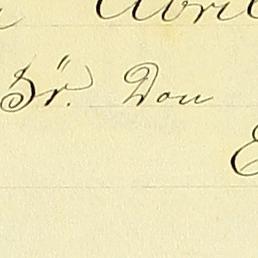 Abril
Sr. Don